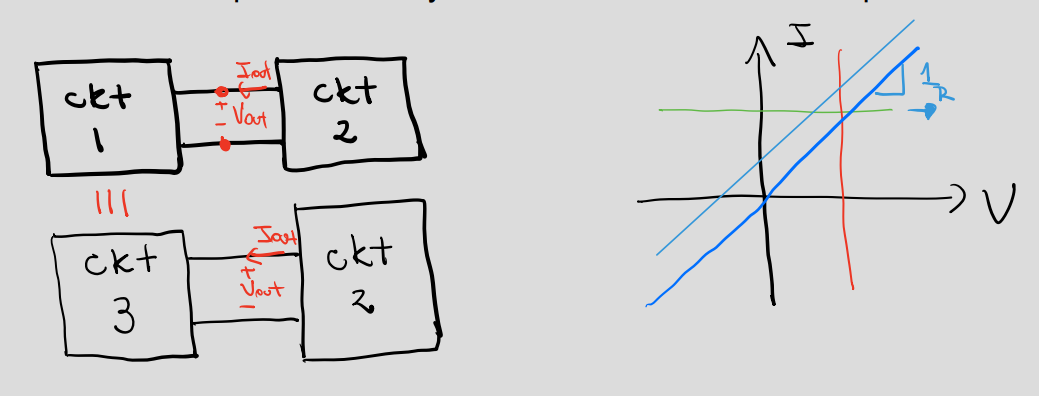 ckt
1
Iout
+
Vout
-
ckt
2
|||
ckt
3
Iout
+
Vout
-
ckt
2
I
1
R
V